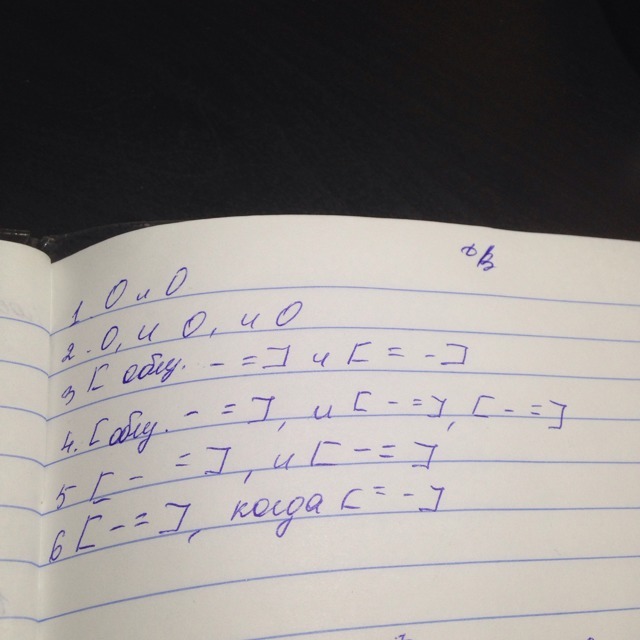 В
1. О и О
2. О, и О, и О
3 [ общ. - = ] и [ = - ]
4. [ общ. - = ], и [ - = ], [ - = ]
5 [ - = ], и [ - = ]
6 [ - = ], когда [ = - ]